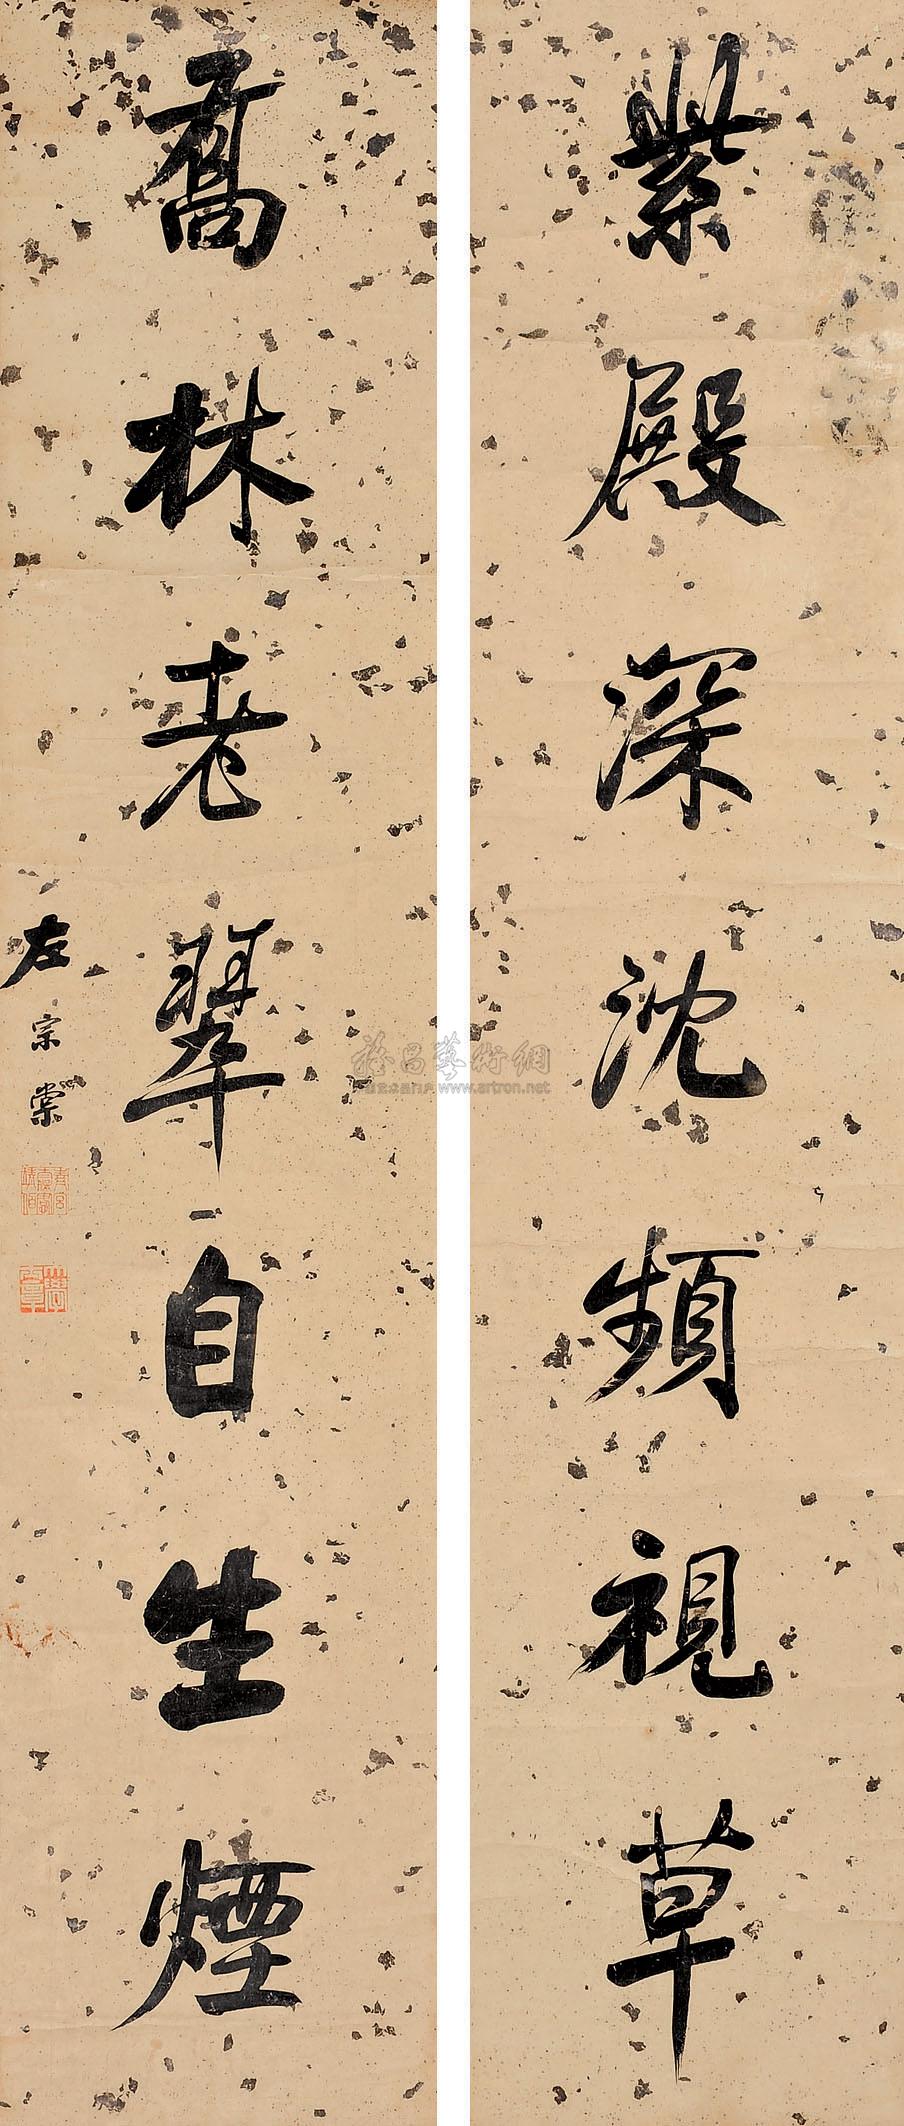 紫殿深沈頻視草
喬林老翠自生煙
左宗棠
雅昌藝術網
www.artron.net